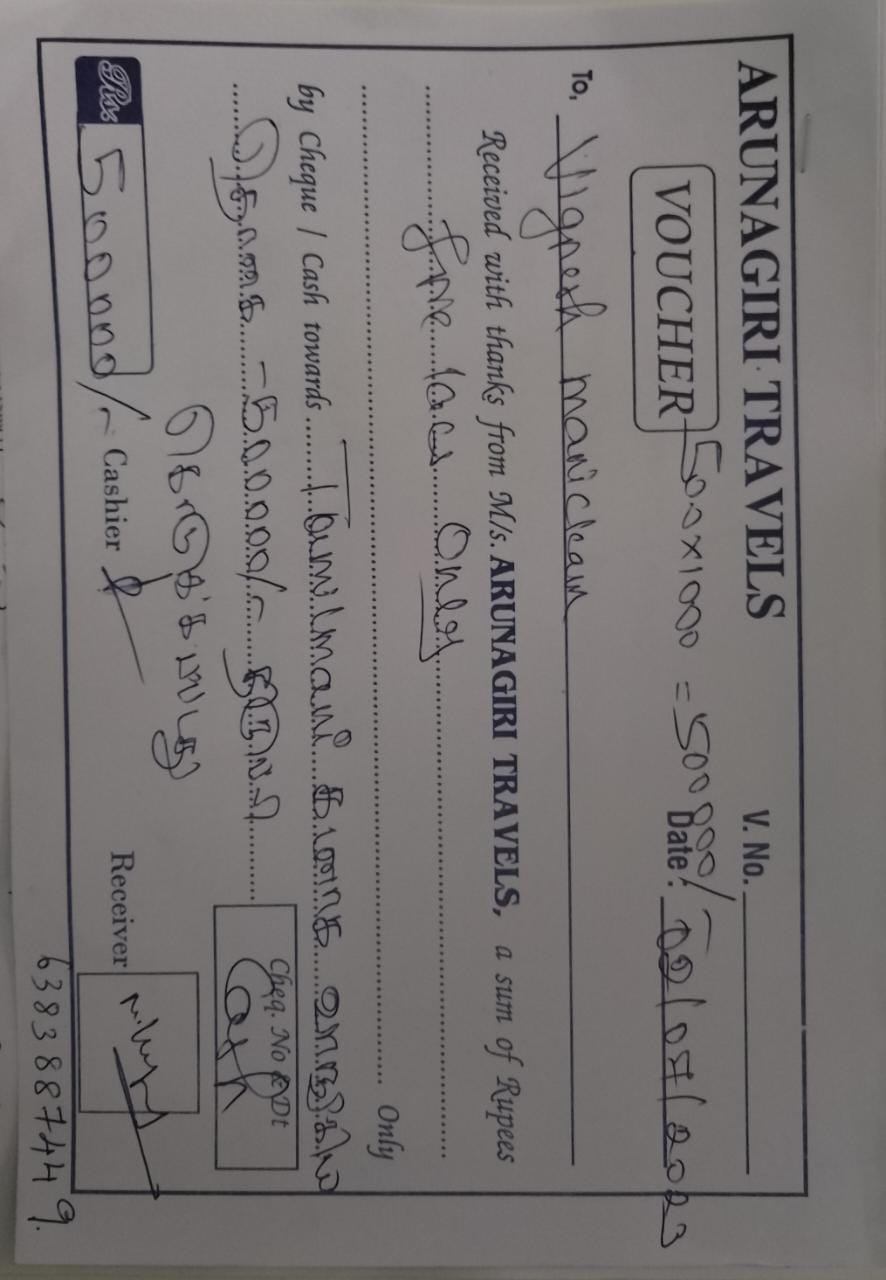 ARUNAGIRI TRAVELS
V. No.
VOUCHER
500x1000 = 500000/-
Date: 02/07/2023
To, Vignesh manickam
Received with thanks from M/s. ARUNAGIRI TRAVELS, a sum of Rupees
five lacs Only
Only
by Cheque / Cash towards Tamilmani
தொகை -500000/-
Cheq. No & Dt
Cash
கொடுக்கப்பட்டது
Rs. 500000/-
Cashier
Receiver
6383887449